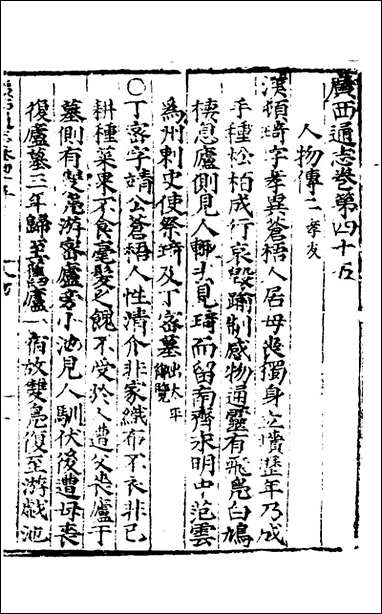 廣西通志卷第四十五
人物傳二 孝友
漢頓琦字孝異蒼梧人居母喪獨身立墳歷年乃成
手種松柏成行哀毀踊制感物通靈有飛鳧白鳩
棲息廬側見人輒去見琦而留南齊永明中范雲
為州刺史使祭琦及丁密墓 出太平御覽
○丁密字靖公蒼梧人性清介非家織布不衣非己
耕種菜果不食毫髮之餽不受於人遭父喪廬于
墓側有雙鳧游密廬旁小池見人馴伏後遭母喪
復廬墓三年歸至舊廬一宿故雙鳧復至游戲池